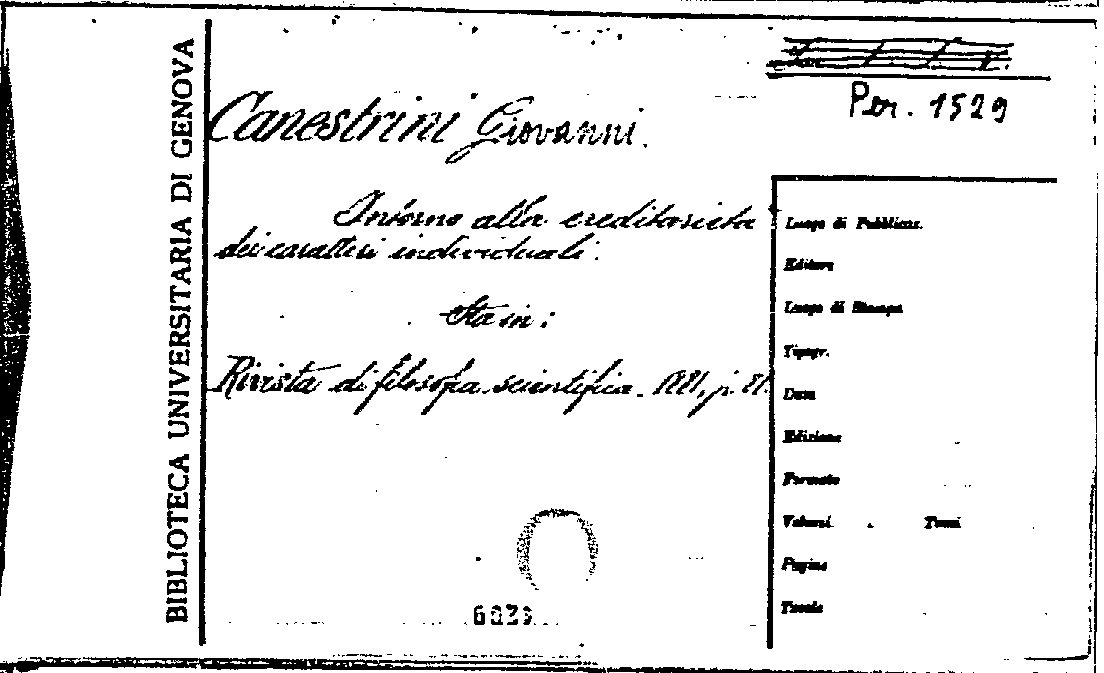 BIBLIOTECA UNIVERSITARIA DI GENOVA
Per. 1529
Canestrini Giovanni.
Intorno alla ereditarietà
dei caratteri individuali.
Sta in:
Rivista di filosofia scientifica. 1881, p. 81.
Luogo di Pubblicaz.
Editore
Luogo di Stampa
Tipogr.
Data
Edizione
Formato
Volumi. Tomi
Pagine
Tavole